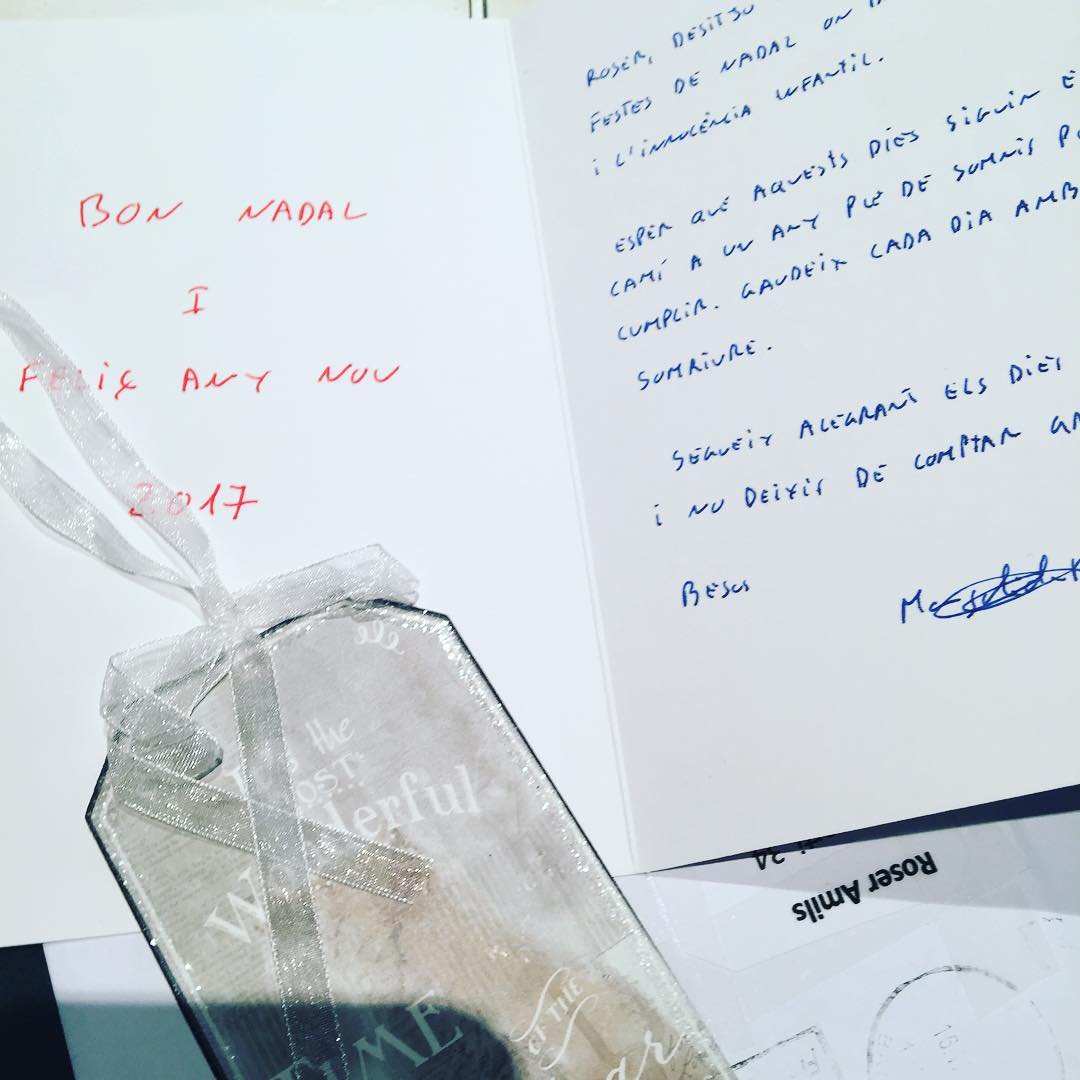 BON NADAL
I
FELIÇ ANY NOU
2017
ROSER, DESITJO
FESTES DE NADAL ON
i L'INNOCÈNCIA INFANTIL.
ESPER QUE AQUESTS DIES SIGUIN
CAMÍ A UN ANY PLE DE SOMNIS
CUMPLIR. GAUDEIX CADA DIA AMB
SOMRIURE.
SEGUEIX ALEGRANT ELS DIES
i NO DEIXIS DE COMPTAR
BESOS
It's the
MOST
Wonderful
TIME
OF THE
Roser Amils
34